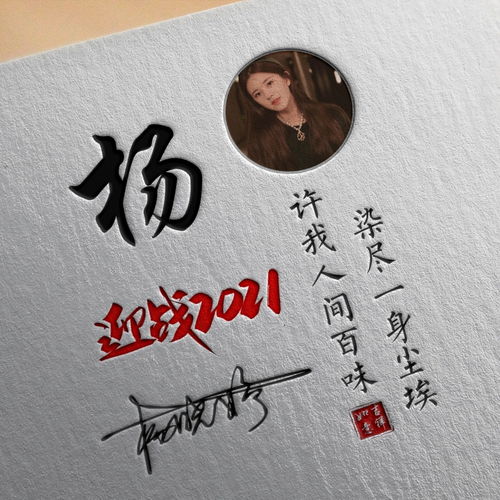 杨
迎战2021
染尽一身尘埃
许我人间百味
吉祥
如意